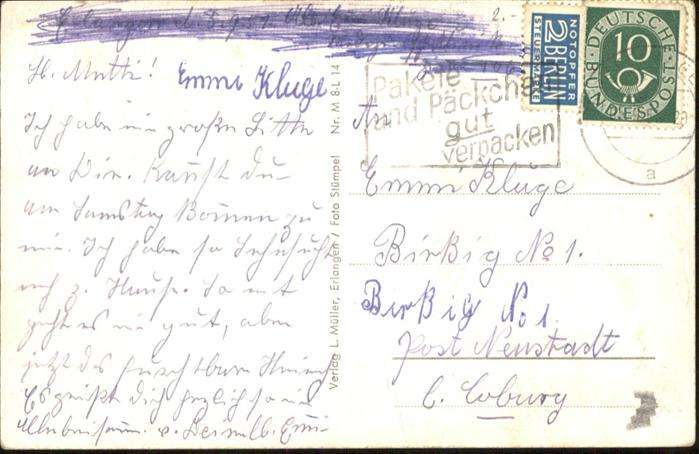 Lb. Mutti!
Emmi Kluge
Ich habe eine große Bitte
an Dir. Kannst Du
am Samstag kommen zu
mir. Ich habe so Sehnsucht
nach z. Hause. Sonst
geht es mir gut, aber
jetzt das furchtbare
Es grüßt Dich herzlich
Verlag L. Müller, Erlangen / Foto Stümpel Nr. M 8-L 14
NOTOPFER
2 BERLIN
STEUERMARKE
DEUTSCHE
10
BUNDESPOST
Pakete
und Päckchen
gut
verpacken
a
An
Emmi Kluge
Birkig No 1.
Birkig No 1
Post Neustadt
b. Coburg